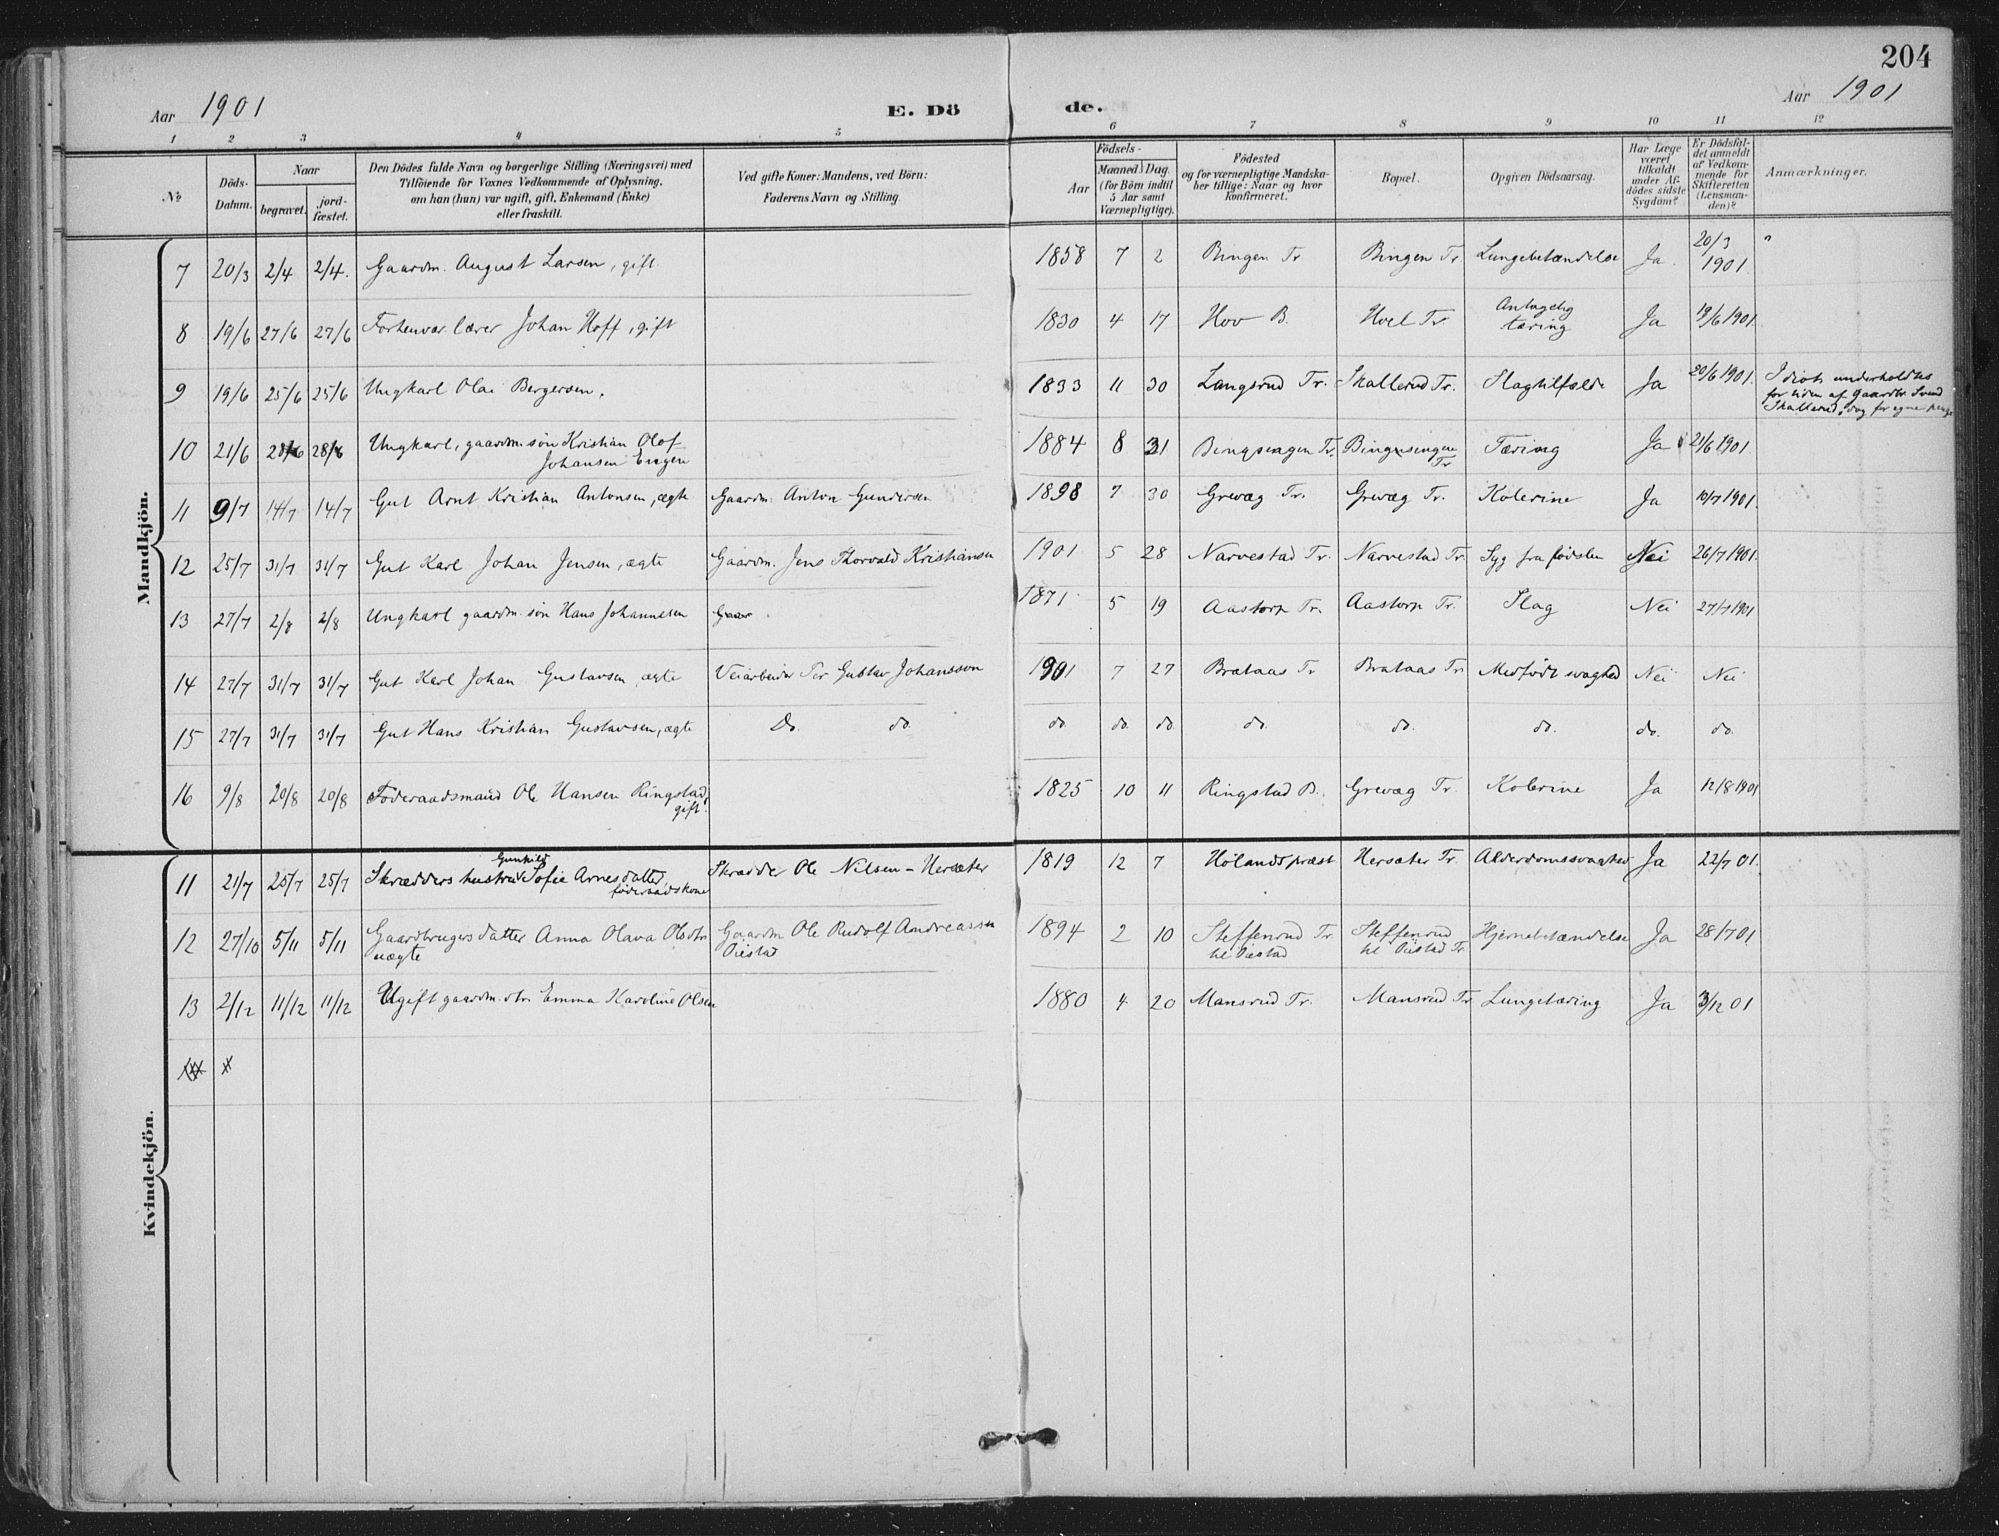 204
Aar 1901 E. Dö
de. Aar 1901
1 2 3 4 5 6 7 8 9 10 11 12
№
Döds-
Datum.
Naar
begravet.
jord-
fæstet.
Den Dödes fulde Navn og borgerlige Stilling (Næringsvei) med
Tilföiende for Voxnes Vedkommende af Oplysning,
om han (hun) var ugift, gift, Enkemand (Enke)
eller fraskilt.
Ved gifte Koner: Mandens, ved Börn:
Faderens Navn og Stilling.
Födsels-
Aar
Maaned. Dag.
(for Börn indtil
5 Aar samt
Værnepligtige).
Födested
og for værnepligtige Mandska-
ber tillige: Naar og hvor
konfirmeret.
Bopæl.
Opgiven Dödsaarsag.
Har Læge
været
tilkaldt
under Af-
dödes sidste
Sygdom?
Er Dödsfal-
det anmeldt
af Vedkom-
mende for
Skifteretten
(Lensman-
den)?
Anmærkninger.
Mandkjön.
7 20/3 2/4 2/4. Gaardm. August Larsen, gift. 1858 7 2 Bingen Tr Bingen Tr Lungebetændelse Ja. 20/3 1901 "
8 19/6 27/6 27/6 Forhenvar. lærer Johan Hoff, gift 1830 4 17 Hov B. Hoel Tr. Antagelig tæring Ja 19/6 1901.
9 19/6 25/6 25/6 Ungkarl Olai Bergersen. 1833 11 30 Langsrud Tr. Skallerud Tr. Slagtilfælde Ja 20/6 1901. Idiot underholdtes
for tiden af Gaardbr Svend
Skallerud, dog for egne penge
10 21/6 28/6 28/6 Ungkarl, gaardm. søn Kristian Olof
Johansen Engen 1884 8 31 Bingsengen Tr. Bingsengen Tr Tæring Ja 21/6 1901.
11 9/7 14/7 14/7 Gut Arnt Kristian Antonsen, ægte Gaardm. Anton Gundersen 1898 7 30 Grevæg Tr. Grevæg Tr. Kolerine Ja 10/7 1901.
12 25/7 31/7 31/7 Gut Karl Johan Jensen, ægte Gaardm. Jens Thorvald Kristiansen 1901 5 28 Narvestad Tr. Narvestad Tr. Syg fra fødslen Nei 26/7 1901.
13 27/7 2/8 2/8 Ungkarl gaardm. søn Hans Johannesen Gaar 1871 5 19 Aastorp Tr. Aastorp Tr. Slag Nei 27/7 1901
14 27/7 31/7 31/7 Gut Karl Johan Gustavsen, ægte Veiarbeider Per Gustav Johansson 1901 7 27 Brataas Tr Brataas Tr Medfødt svaghed Nei Nei
15 27/7 31/7 31/7 Gut Hans Kristian Gustavsen, ægte Do. do. do. do. do. do. do. do. do. do.
16 9/8 20/8 20/8 Føderaadsmand Ole Hansen Ringstad,
gift. 1825 10 11 Ringstad B. Grevæg Tr. Kolerine Ja 12/8 1901
Kvindekjön.
11 21/7 25/7 25/7 Skrædders hustru Gunhild Sofie Arnesdatter
føderaadskone Skrædder Ole Nilsen - Hersæter 1819 12 7 Hølands præst Hersæter Tr. Alderdomssvaghed Ja 22/7 01.
12 27/10 5/11 5/11 Gaardbrugers datter Anna Olava Olsdtr
uægte Gaardm Ole Rudolf Andreassen
Piestad 1894 2 10 Steffensrud Tr.
til Piestad Steffensrud
til Piestad Tr. Hjernebetændelse Ja 28/7 01
13 2/12 11/12 11/12 Ugift gaardm. dtr. Emma Karoline Olsen 1880 4 20 Mansrud Tr. Mansrud Tr Lungetæring Ja 3/12 01